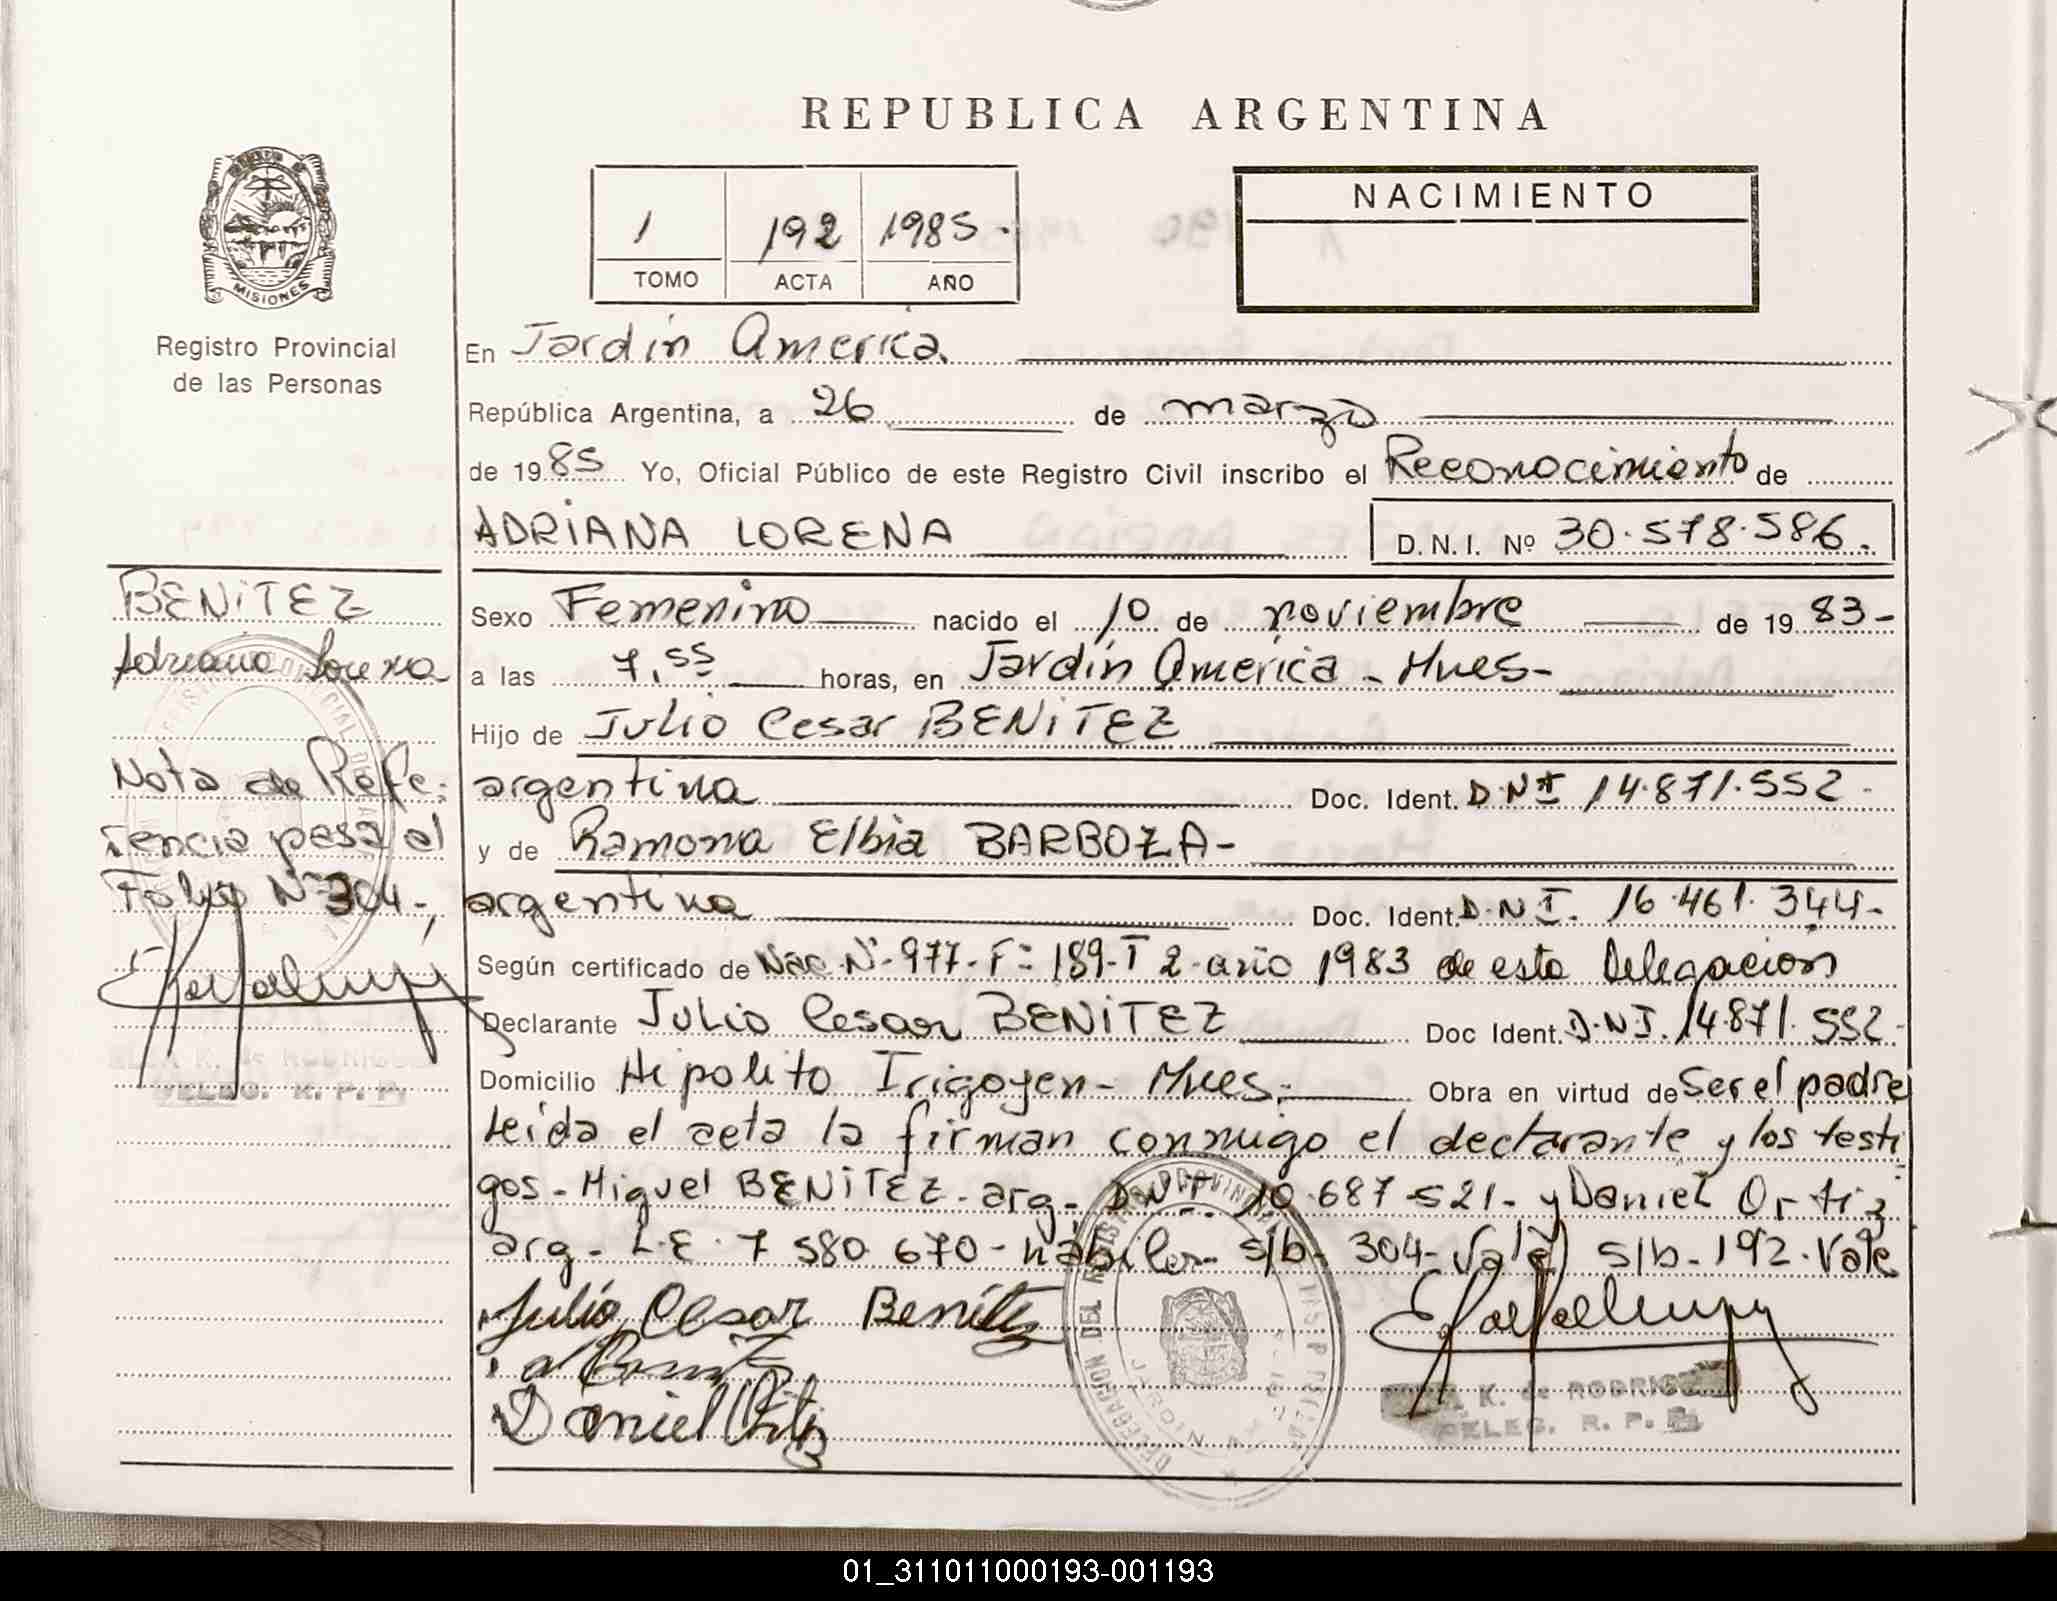 REPUBLICA ARGENTINA
MISIONES
Registro Provincial
de las Personas
1 192 1985.
TOMO ACTA AÑO
NACIMIENTO
En Jardín America
República Argentina, a 26 de marzo
de 1985 Yo, Oficial Público de este Registro Civil inscribo el Reconocimiento de
ADRIANA LORENA D.N.I. Nº 30.578.586.
BENITEZ
Adriana Lorena
Nota de Refe-
rencia pasa al
Folio Nº 304-
K. de RODRIGUE
DELEG. R. P. P.
Sexo Femenino nacido el 10 de noviembre de 1983-
a las 7,55 horas, en Jardín América - Mnes-
Hijo de Julio Cesar BENITEZ
argentina Doc. Ident. D.N.I 14.871.552-
y de Ramona Elbia BARBOZA-
argentina Doc. Ident. D.N.I. 16.461.344-
Según certificado de Nac. Nº 977-Fº 189-T 2-año 1983 de esta Delegación
Declarante Julio Cesar BENITEZ Doc Ident. D.N.I. 14.871.552-
Domicilio Hipolito Irigoyen- Mnes- Obra en virtud de Ser el padre
Leida el acta la firman conmigo el declarante y los testi
gos- Miguel BENITEZ- arg- D.N.I. 10.687-521- y Daniel Ortiz
arg- L.E. 7 580 670- hábiles- s/b- 304-Vale) s/b-192-Vale
Julio Cesar Benitez
Daniel Ortiz
DELEGACION DEL REGISTRO PROVINCIAL DE LAS PERSONAS
JARDIN A
K. de RODRIGUE
DELEG. R. P. P.
01_311011000193-001193